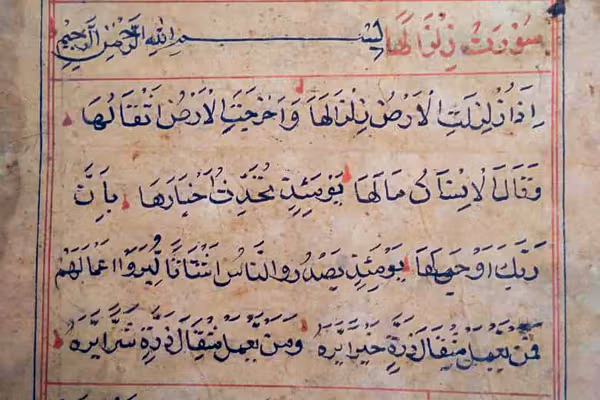 سورت زلزالها بِسْمِ اللهِ الرَّحْمٰنِ الرَّحِيْمِ
اِذَا زُلْزِلَتِ الْاَرْضُ زِلْزَالَهَا وَاَخْرَجَتِ الْاَرْضُ اَثْقَالَهَا
وَقَالَ الْاِنْسَانُ مَالَهَا يَوْمَئِذٍ تُحَدِّثُ اَخْبَارَهَا بِاَنَّ
رَبَّكَ اَوْحٰى لَهَا يَوْمَئِذٍ يَصْدُرُ النَّاسُ اَشْتَاتًا لِيُرَوْا اَعْمَالَهُمْ
فَمَنْ يَعْمَلْ مِثْقَالَ ذَرَّةٍ خَيْرًا يَرَهُ وَمَنْ يَعْمَلْ مِثْقَالَ ذَرَّةٍ شَرًّا يَرَهُ